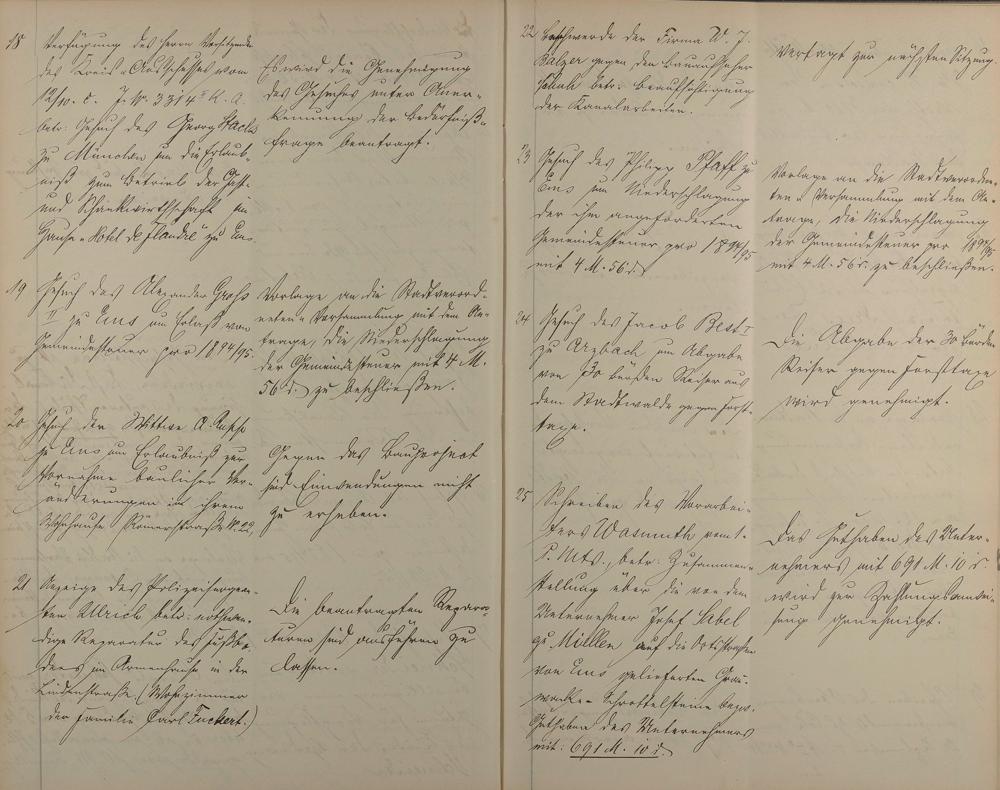 18
Verfügung des Herrn Vorsitzenden
des Kreis-Ausschusses vom
12/10. c. J. Nr. 3314 K. A.
betr: Gesuch des Georg Stacke
zu München um die Erlaub-
niß zum Betrieb der Gast-
und Schankwirthschaft im
Hause "Hotel de Flandre" zu Ems.
Es wird die Genehmigung
des Gesuches unter Aner-
kennung der Bedürfniß-
frage beantragt.
19
Gesuch des Alexander Groß
II zu Ems um Erlaß von
Gemeindesteuer pro 1894/95.
Vorlage an die Stadtverord-
neten-Versammlung mit dem An-
trage, die Niederschlagung
der Gemeindesteuer mit 4 M.
56 d. zu beschließen.
20
Gesuch der Wittwe A.
zu Ems um Erlaubniß zur
Vornahme baulicher Ver-
änderungen in ihrem
Wohnhause Römerstraße Nr. 22,
Gegen das Bauproject
sind Einwendungen nicht
zu erheben.
21
Anzeige des Polizeisergean-
ten Ullrich betr: nothwen-
dige Reparatur des Fußbo-
dens im Armenhause in der
Lindenstraße. (Wohnzimmer
der Familie Carl Tuckert.)
Die beantragten Repara-
turen sind ausführen zu
lassen.
22
Beschwerde der Firma W. J.
Balzer gegen den Bauaufseher
betr: Beaufsichtigung
der Kanalarbeiten.
Vertagt zur nächsten Sitzung.
23
Gesuch des Philipp Pfaff zu
Ems um Niederschlagung
der ihm angeforderten
Gemeindesteuer pro 1894/95
mit 4 M. 56 d.
Vorlage an die Stadtverordne-
ten-Versammlung mit dem An-
trage, die Niederschlagung
der Gemeindesteuer pro 1894/95
mit 4 M. 56 d. zu beschließen.
24
Gesuch des Jacob Best I
zu Arzbach um Abgabe
von 30 Bürden Reiser aus
dem Stadtwalde gegen Forst-
taxe.
Die Abgabe der 30 Bürden
Reiser gegen Forsttaxe
wird genehmigt.
25
Schreiben des Vorarbei-
ters Wasmuth vom 1.
d. Mts., betr: Zusammen-
stellung über die von dem
Unternehmer Josef Sabel
zu Miellen auf die Ortsstraßen
von Ems gelieferten Grau-
wacke-Schrottelsteine bezw.
Guthaben des Unternehmers
mit: 691 M. 10 d.
Das Guthaben des Unter-
nehmers mit 691 M. 10 d.
wird zur Zahlungsanwei-
sung genehmigt.